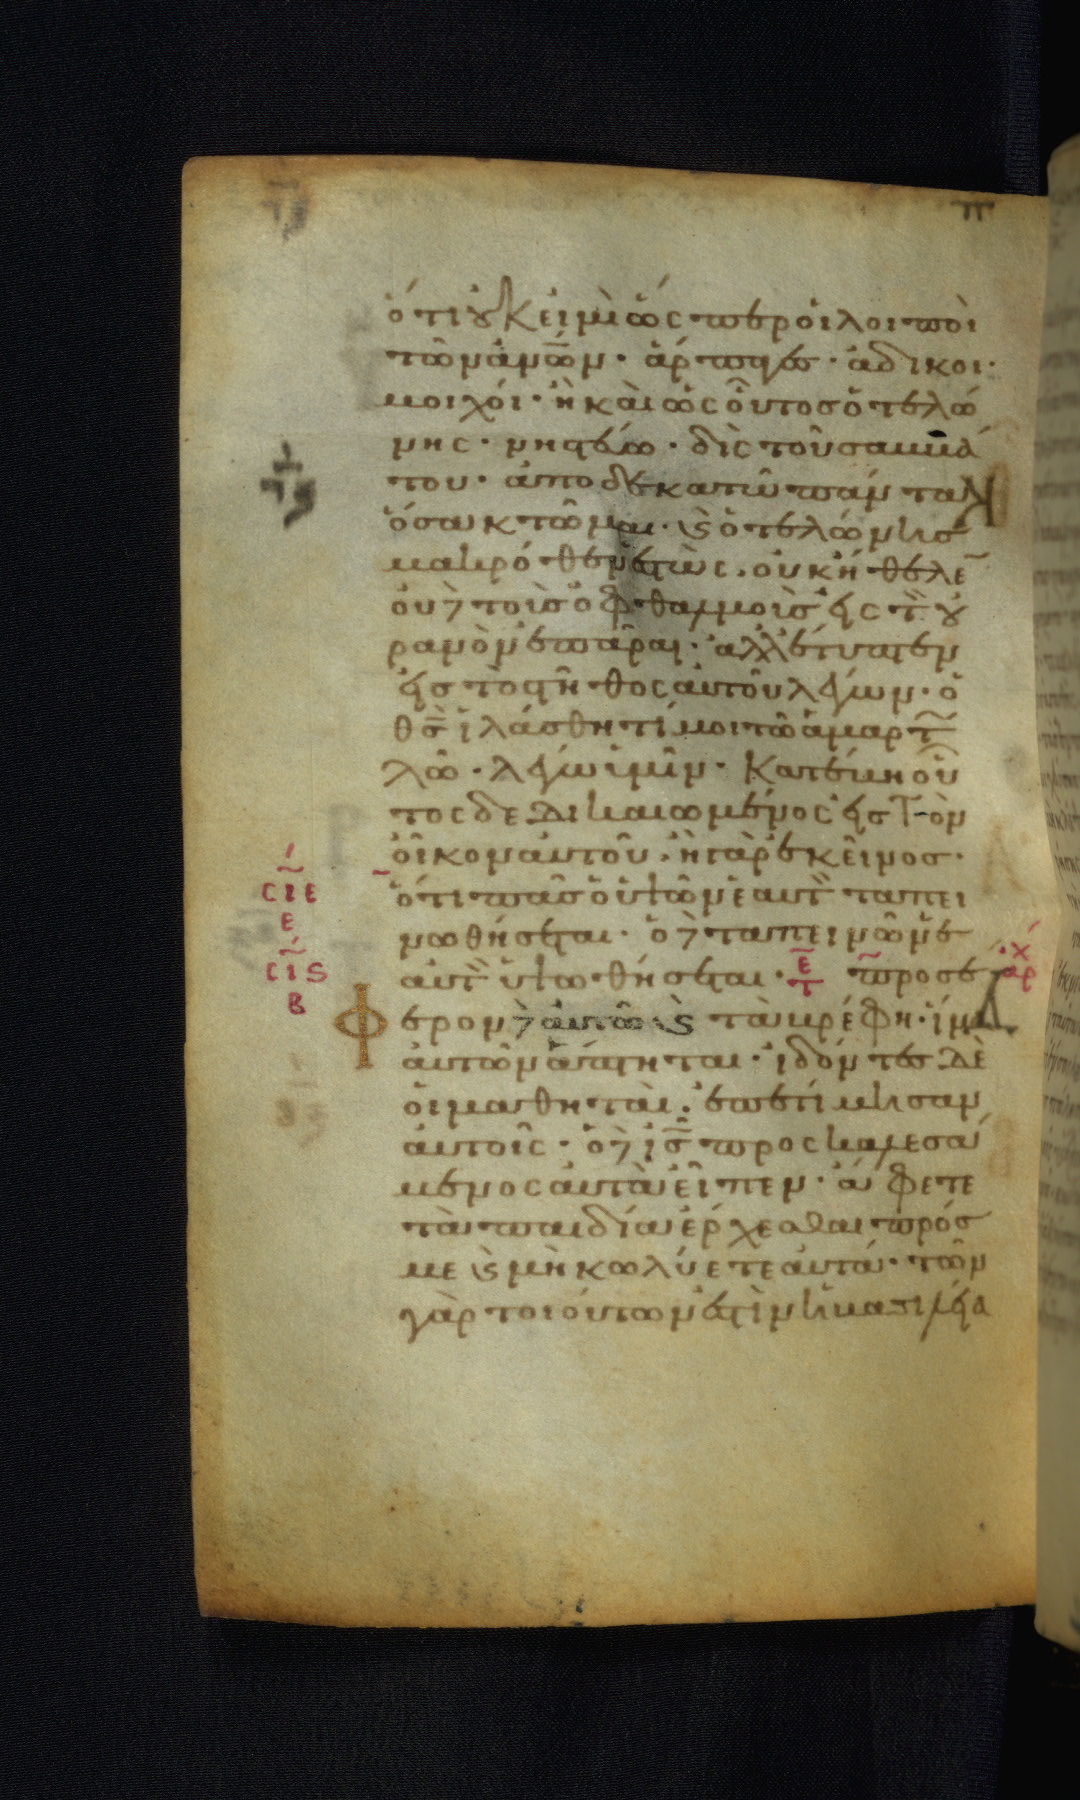 ὅτι οὐκ εἰμὶ ὥσπερ οἱ λοιποὶ
τῶν ἀν̅ω̅ν· ἅρπαγες· ἄδικοι·
μοιχοί· ἢ καὶ ὡς οὗτος ὁ τελώ
νης· νηστεύω· δὶς τοῦ σαββά
του· ἀποδεκατῶ πάντα
ὅσα κτῶμαι· ϗ ὁ τελώνης
μακρόθεν ἑστὼς. οὐκ ἤθελε
οὐδὲ τοῖς ὀφθαλμοῖς εἰς τὸν οὐ
ρανὸν ἐπᾶραι· ἀλλ' ἔτυπτεν
εἰς τὸ στῆθος αὐτοῦ λέγων· ὁ
θς̅ ἱλάσθητί μοι τῶ ἁμαρτω
λῶ· λέγω ὑμῖν· κατέβη οὗ
τος δεδικαιωμένος εἰς τὸν
οἶκον αὐτοῦ. ἢ γὰρ ἐκεῖνος·
ὅτι πᾶς ὁ ὑψῶν ἑαυτὸν ταπει
νωθήσεται· ὁ δὲ ταπεινῶν ἑ
αυτὸν ὑψωθήσεται· προσέ
φερον δὲ αὐτῶ ϗ τὰ βρέφη· ἵνα
αὐτῶν ἅπτηται· ἰδόντες δὲ
οἱ μαθηταὶ. ἐπετίμησαν
αὐτοῖς· ὁ δὲ ις̅ προσκαλεσά
μενος αὐτὰ εἶπεν· ἄφετε
τὰ παιδία ἔρχεσθαι πρός
με ϗ μὴ κωλύετε αὐτά· τῶν
γὰρ τοιούτων ἐστὶν ἡ βασιλεία
π
σιε
ε
σις
β
αρχ